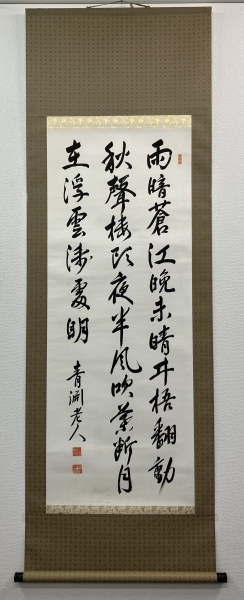 雨暗蒼江晩未晴井梧翻動
秋聲樓頭夜半風吹葉断月
在浮雲浅處明
青淵老人